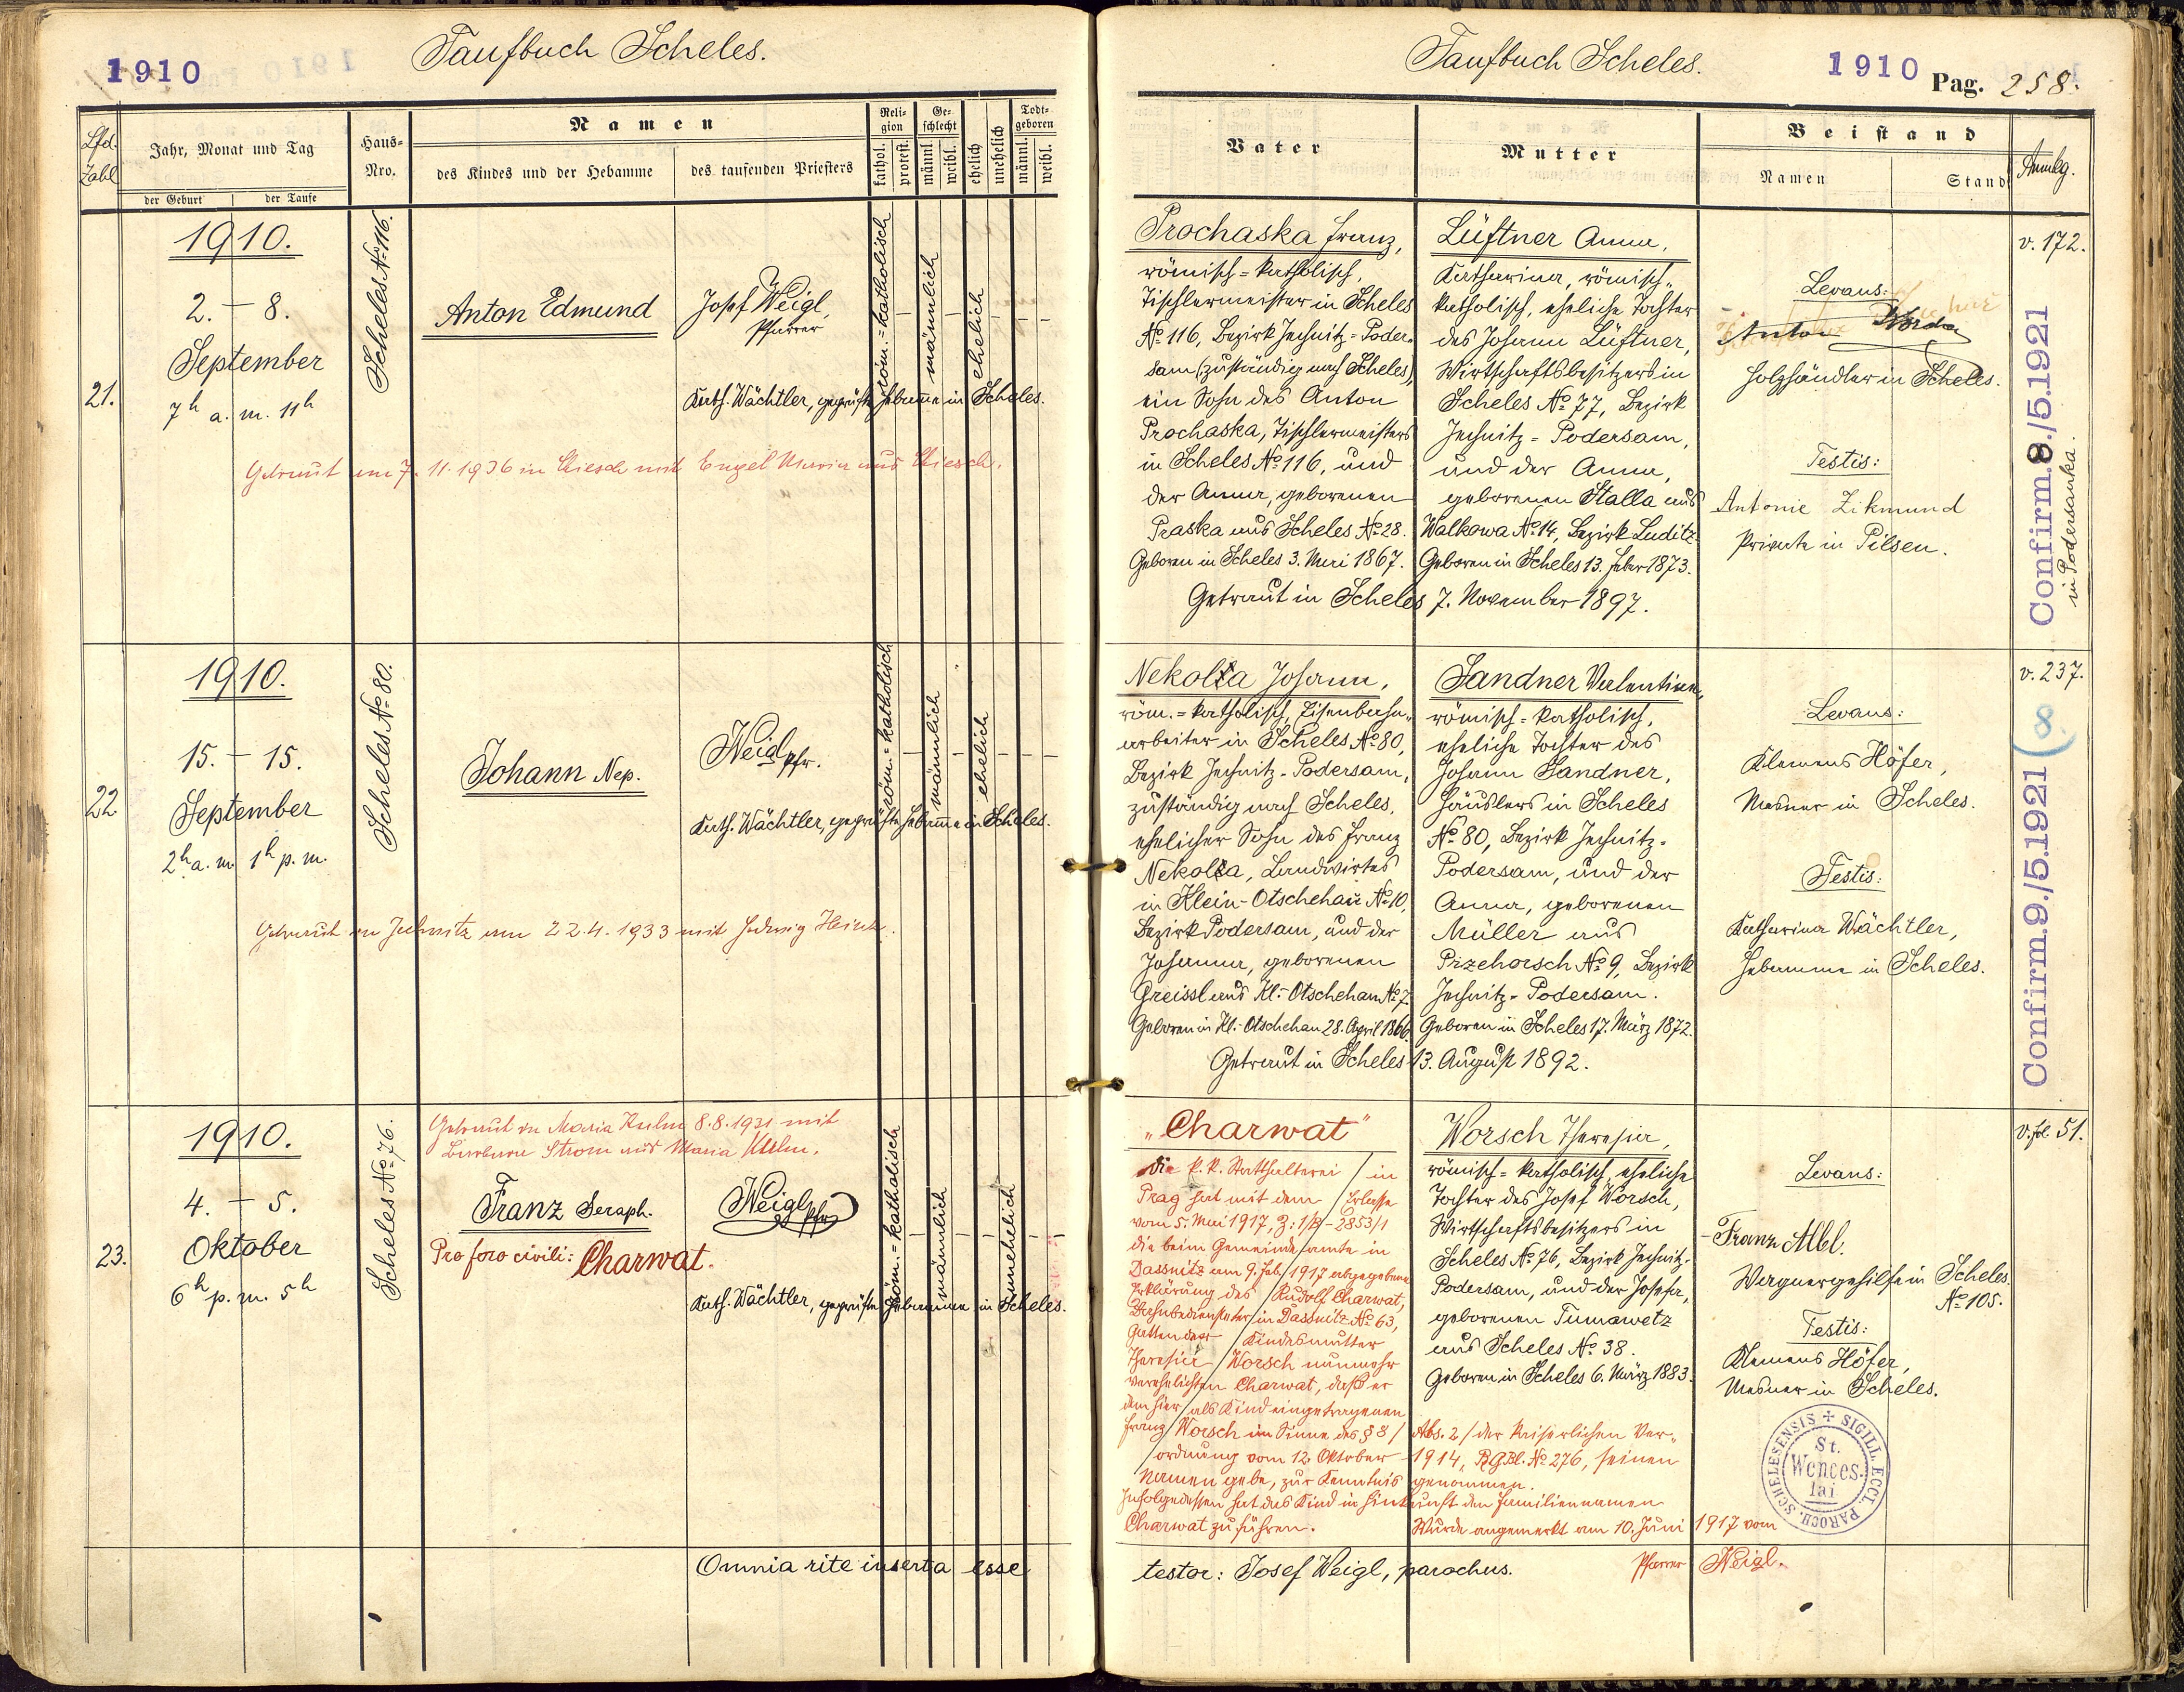 1910
Taufbuch Scheles.
Lfd. Zahl
Jahr, Monat und Tag
der Geburt
der Taufe
Haus-Nro.
Namen
des Kindes und der Hebamme
des taufenden Priesters
Religion
kathol.
protest.
Geschlecht
männl.
weibl.
ehelich
unehelich
Todtgeboren
männl.
weibl.
21.
1910.
2. – 8.
September
7h a. m. 11h
Scheles No 116.
Anton Edmund
Josef Weigl,
Pfarrer
röm.=katholisch
männlich
ehelich
Kath. Wächtler, geprüfte Hebamme in Scheles.
Getraut am 7. 11. 1936 in Chiesch mit Engel Maria aus Chiesch.
22
1910.
15. – 15.
September
2h a. m. 1h p. m.
Scheles No 80.
Johann Nep.
Weigl Pfr.
röm.=katholisch
männlich
ehelich
Kath. Wächtler, geprüfte Hebamme in Scheles.
Getraut in Jechnitz am 22.4.1933 mit Hedwig
23.
1910.
4. – 5.
Oktober
6h p. m. 5h
Scheles No 76.
Getraut in Maria Kulm 8.8.1931 mit
Barbara Strom aus Maria Kulm.
Franz Seraph.
Pro foro civili: Charwat.
Weigl Pfr
röm.=katholisch
männlich
unehelich
Kath. Wächtler, geprüfte Hebamme in Scheles.
Omnia rite inserta esse
Taufbuch Scheles.
1910
Pag. 258.
Vater
Mutter
Beistand
Namen
Stand
Anmkg.
Prochaska Franz,
römisch=katholisch,
Tischlermeister in Scheles
No 116, Bezirk Jechnitz=Poder=
sam (zuständig nach Scheles),
ein Sohn des Anton
Prochaska, Tischlermeisters
in Scheles No 116, und
der Anna, geborenen
Praska aus Scheles No 28.
Geboren in Scheles 3. Mai 1867.
Lüftner Anna,
Katharina, römisch=
katholisch, eheliche Tochter
des Johann Lüftner,
Wirtschaftsbesitzers in
Scheles No 77, Bezirk
Jechnitz=Podersam,
und der Anna,
geborenen Stalla aus
Walkowa No 14, Bezirk Luditz.
Geboren in Scheles 13. Feber 1873.
Getraut in Scheles 7. November 1897.
Levans:
Anton
Holzhändler in Scheles.
Testis:
Antonie Zikmund
Private in Pilsen.
v. 172.
Confirm. 8./5.1921
in Podersanka.
Nekolla Johann,
röm.=katholisch, Eisenbahn=
arbeiter in Scheles No 80,
Bezirk Jechnitz-Podersam,
zuständig nach Scheles,
ehelicher Sohn des Franz
Nekolla, Landwirtes
in Klein-Otschehau No 10,
Bezirk Podersam, und der
Johanna, geborenen
Greissl aus Kl.-Otschehau No 7.
Geboren in Kl.-Otschehau 28. April 1866.
Sandner Valentina,
römisch=katholisch,
eheliche Tochter des
Johann Sandner,
Häuslers in Scheles
No 80, Bezirk Jechnitz=
Podersam, und der
Anna, geborenen
Müller aus
Przehorsch No 9, Bezirk
Jechnitz-Podersam.
Geboren in Scheles 17. März 1872.
Getraut in Scheles 13. August 1892.
Levans:
Klemens Höfer,
Mesner in Scheles.
Testis:
Katharina Wächtler,
Hebamme in Scheles.
v. 237.
Confirm. 9./5.1921 (8
„Charwat"
Die k. k. Statthalterei / in
Prag hat mit dem / Erlasse
vom 5. Mai 1917, Z: 1/B-2853/1
die beim Gemeindeamte in
Dassnitz am 9. Feb. 1917 abgegebene
Erklärung des Rudolf Charwat,
Bahnbediensteter in Dassnitz No 63,
Gatten der Kindesmutter
Theresia Worsch nunmehr
verehelichten Charwat, daß er
dem hier als Kind eingetragenen
Franz Worsch im Sinne des § 8 / Abs. 2 / der Kaiserlichen Ver=
ordnung vom 12. Oktober 1914, R.G.Bl. No 276, seinen
Namen gebe, zur Kenntnis genommen.
Infolgedessen hat das Kind in Hinkunft den Familiennamen
Charwat zu führen. Wurde angemerkt am 10. Juni 1917 vom
Pfarrer Weigl.
Worsch Theresia,
römisch=katholisch, eheliche
Tochter des Josef Worsch,
Wirtschaftsbesitzers in
Scheles No 76, Bezirk Jechnitz-
Podersam, und der Josefa,
geborenen Tumawetz
aus Scheles No 38.
Geboren in Scheles 6. März 1883.
Levans:
Franz Albl.
Wagnergehilfe in Scheles
No 105.
Testis:
Klemens Höfer,
Mesner in Scheles.
v. fol. 51.
SIGILL. ECCL. PAROCH. SCHELESENSIS
St.
Wences.
lai
testor: Josef Weigl, parochus.